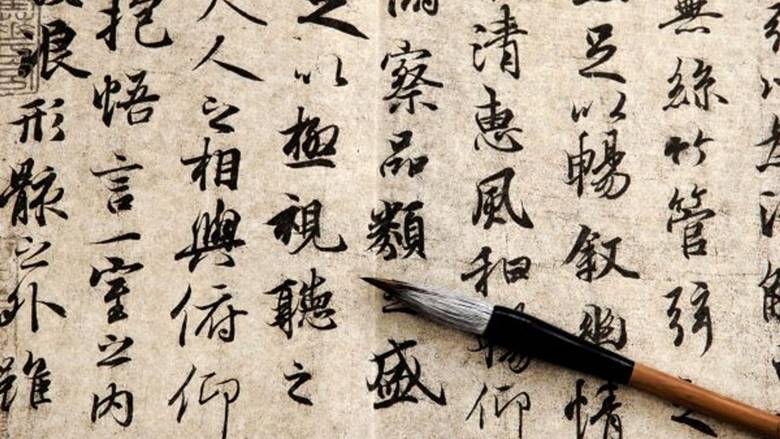 無絲竹管弦之
足以暢敘幽情
清惠風和暢仰
察品類之盛
足以極視聽之
夫人之相與俯仰
抱悟言一室之內
浪形骸之外雖